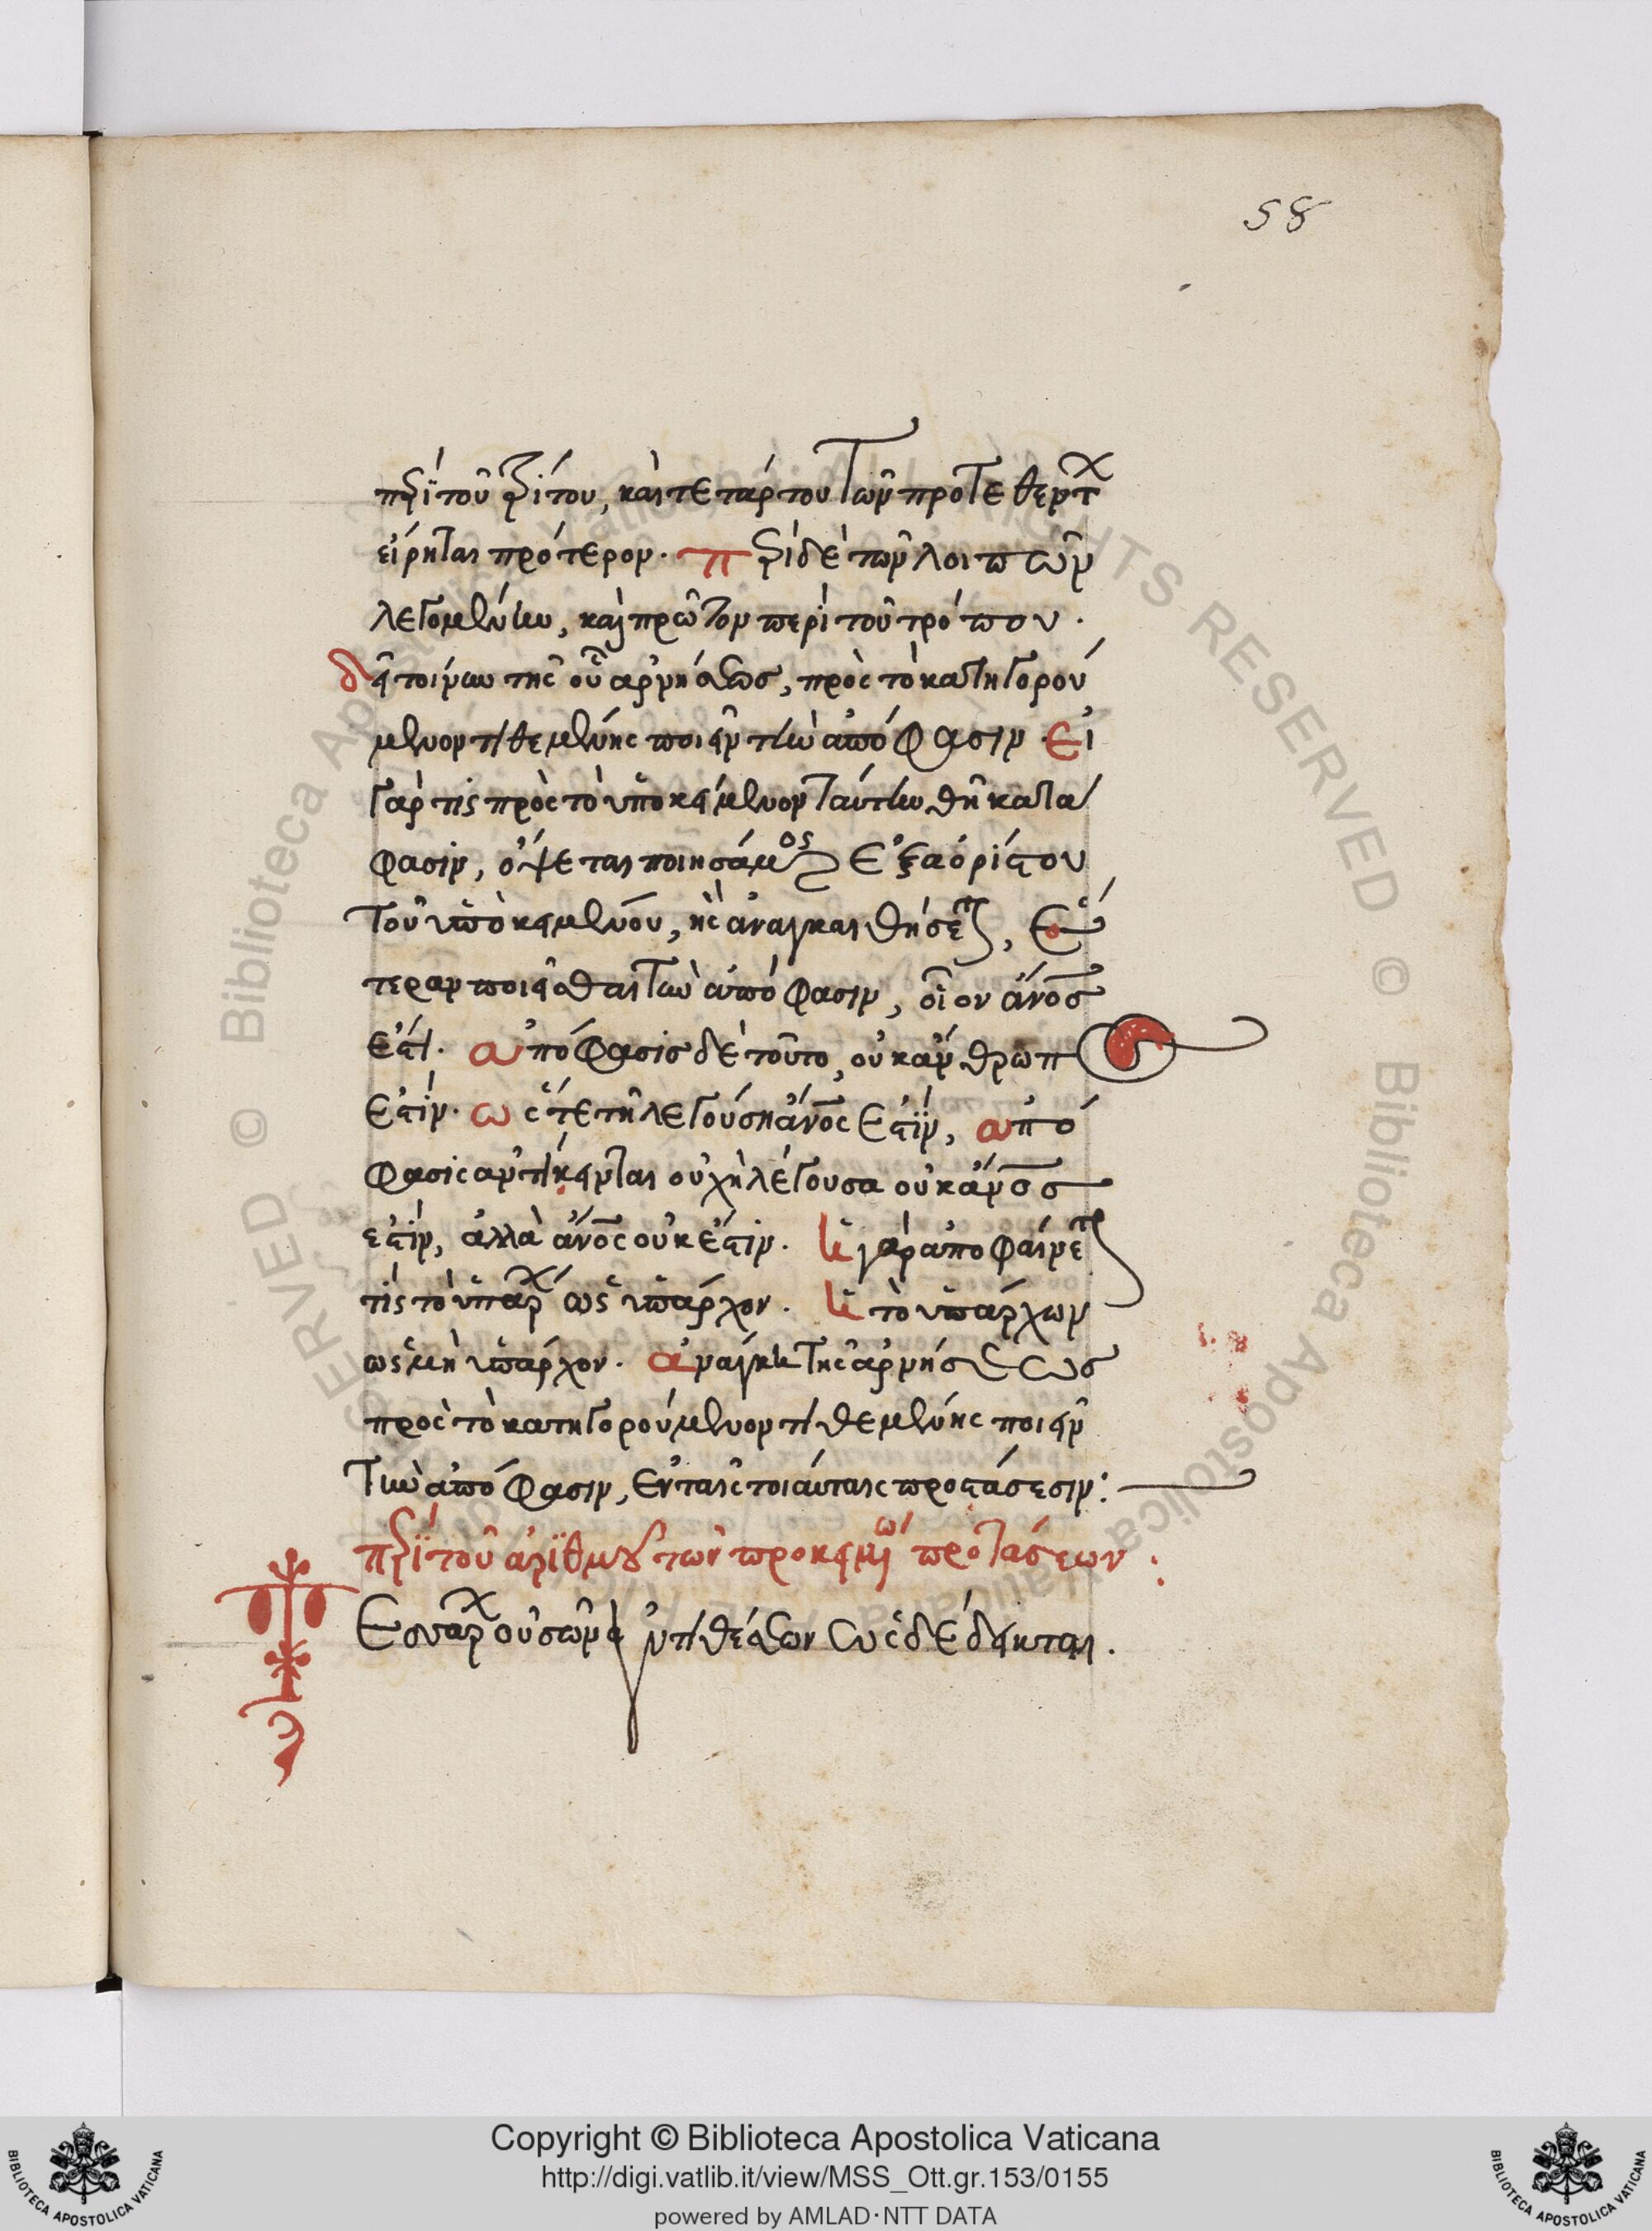 58
περὶ τοῦ τρίτου, καὶ τετάρτου τῶν προτεθέντ
εἴρηται πρότερον. περὶ δὲ τῶν λοιπῶν
λεγομένων, καὶ πρῶτον περὶ τοῦ τρόπου.
δεῖ τοίνυν τῆς οὖ ἀρνήσεως, πρὸς τὸ κατηγορού
μενον τιθεμένης ποιεῖν τὴν ἀπόφασιν. Εἰ
γάρ τις πρὸς τὸ ὑποκείμενον ταύτην θῇ κατα
φασιν, ὄψεται ποιησάμενος ἐξ ἀορίστου
τοῦ ὑποκειμένου, ἢ ἀναγκασθήσεται, ἑ
τέραν ποιεῖσθαι τὴν ἀπόφασιν, οἷον ἄνος
ἐστι. ἀπόφασις δὲ τοῦτο, οὐκ ἄνθρωπος
ἐστιν. ὥστε τῇ λεγούσῃ ἄνος ἐστὶν, ἀπό
φασις ἀντίκειται οὐχ ἡ λέγουσα οὐκ ἄνος
ἐστὶν, ἀλλὰ ἄνος οὐκ ἔστιν. ἢ γὰρ ἀποφαίνεται
τὶς τὸ ὑπάρχ ὡς ὑπάρχον. ἢ τὸ ὑπάρχων
ὡς μὴ ὑπάρχον. ἀνάγκη τῆς ἀρνήσεως
πρὸς τὸ κατηγορούμενον τιθεμένης ποιεῖν
τὴν ἀπόφασιν, ἐν ταῖς τοιαύταις προτάσεσιν:
περὶ τοῦ ἀριθμοῦ τῶν προκειμένων προτάσεων:
Τεσσάρχ οὐσῶν ἀντιθέσεων ὡς δέδεικται.
Copyright © Biblioteca Apostolica Vaticana
http://digi.vatlib.it/view/MSS_Ott.gr.153/0155
powered by AMLAD·NTT DATA
BIBLIOTECA APOSTOLICA VATICANA
BIBLIOTECA APOSTOLICA VATICANA